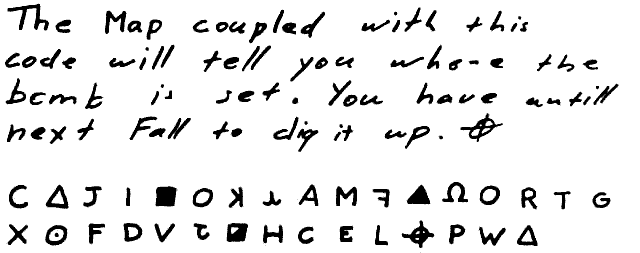 The Map coupled with this
code will tell you where the
bomb is set. You have untill
next Fall to dig it up. ⌖
C Δ J I ■ O ʞ M ꟻ ▲ Ω O R T G
X ⊙ F D V ◪ H C E L ⌖ P W Δ